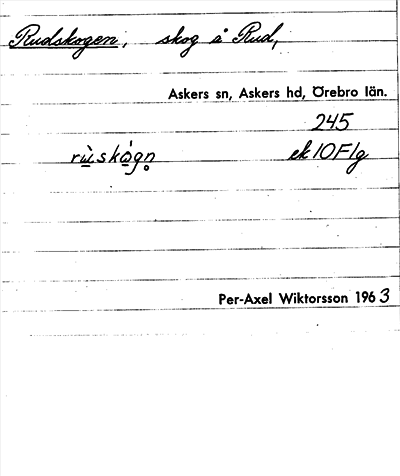 Rudskogen, skog å Rud,
Askers sn, Askers hd, Örebro län.
245
rùskógn̥ ek 10F1g
Per-Axel Wiktorsson 1963